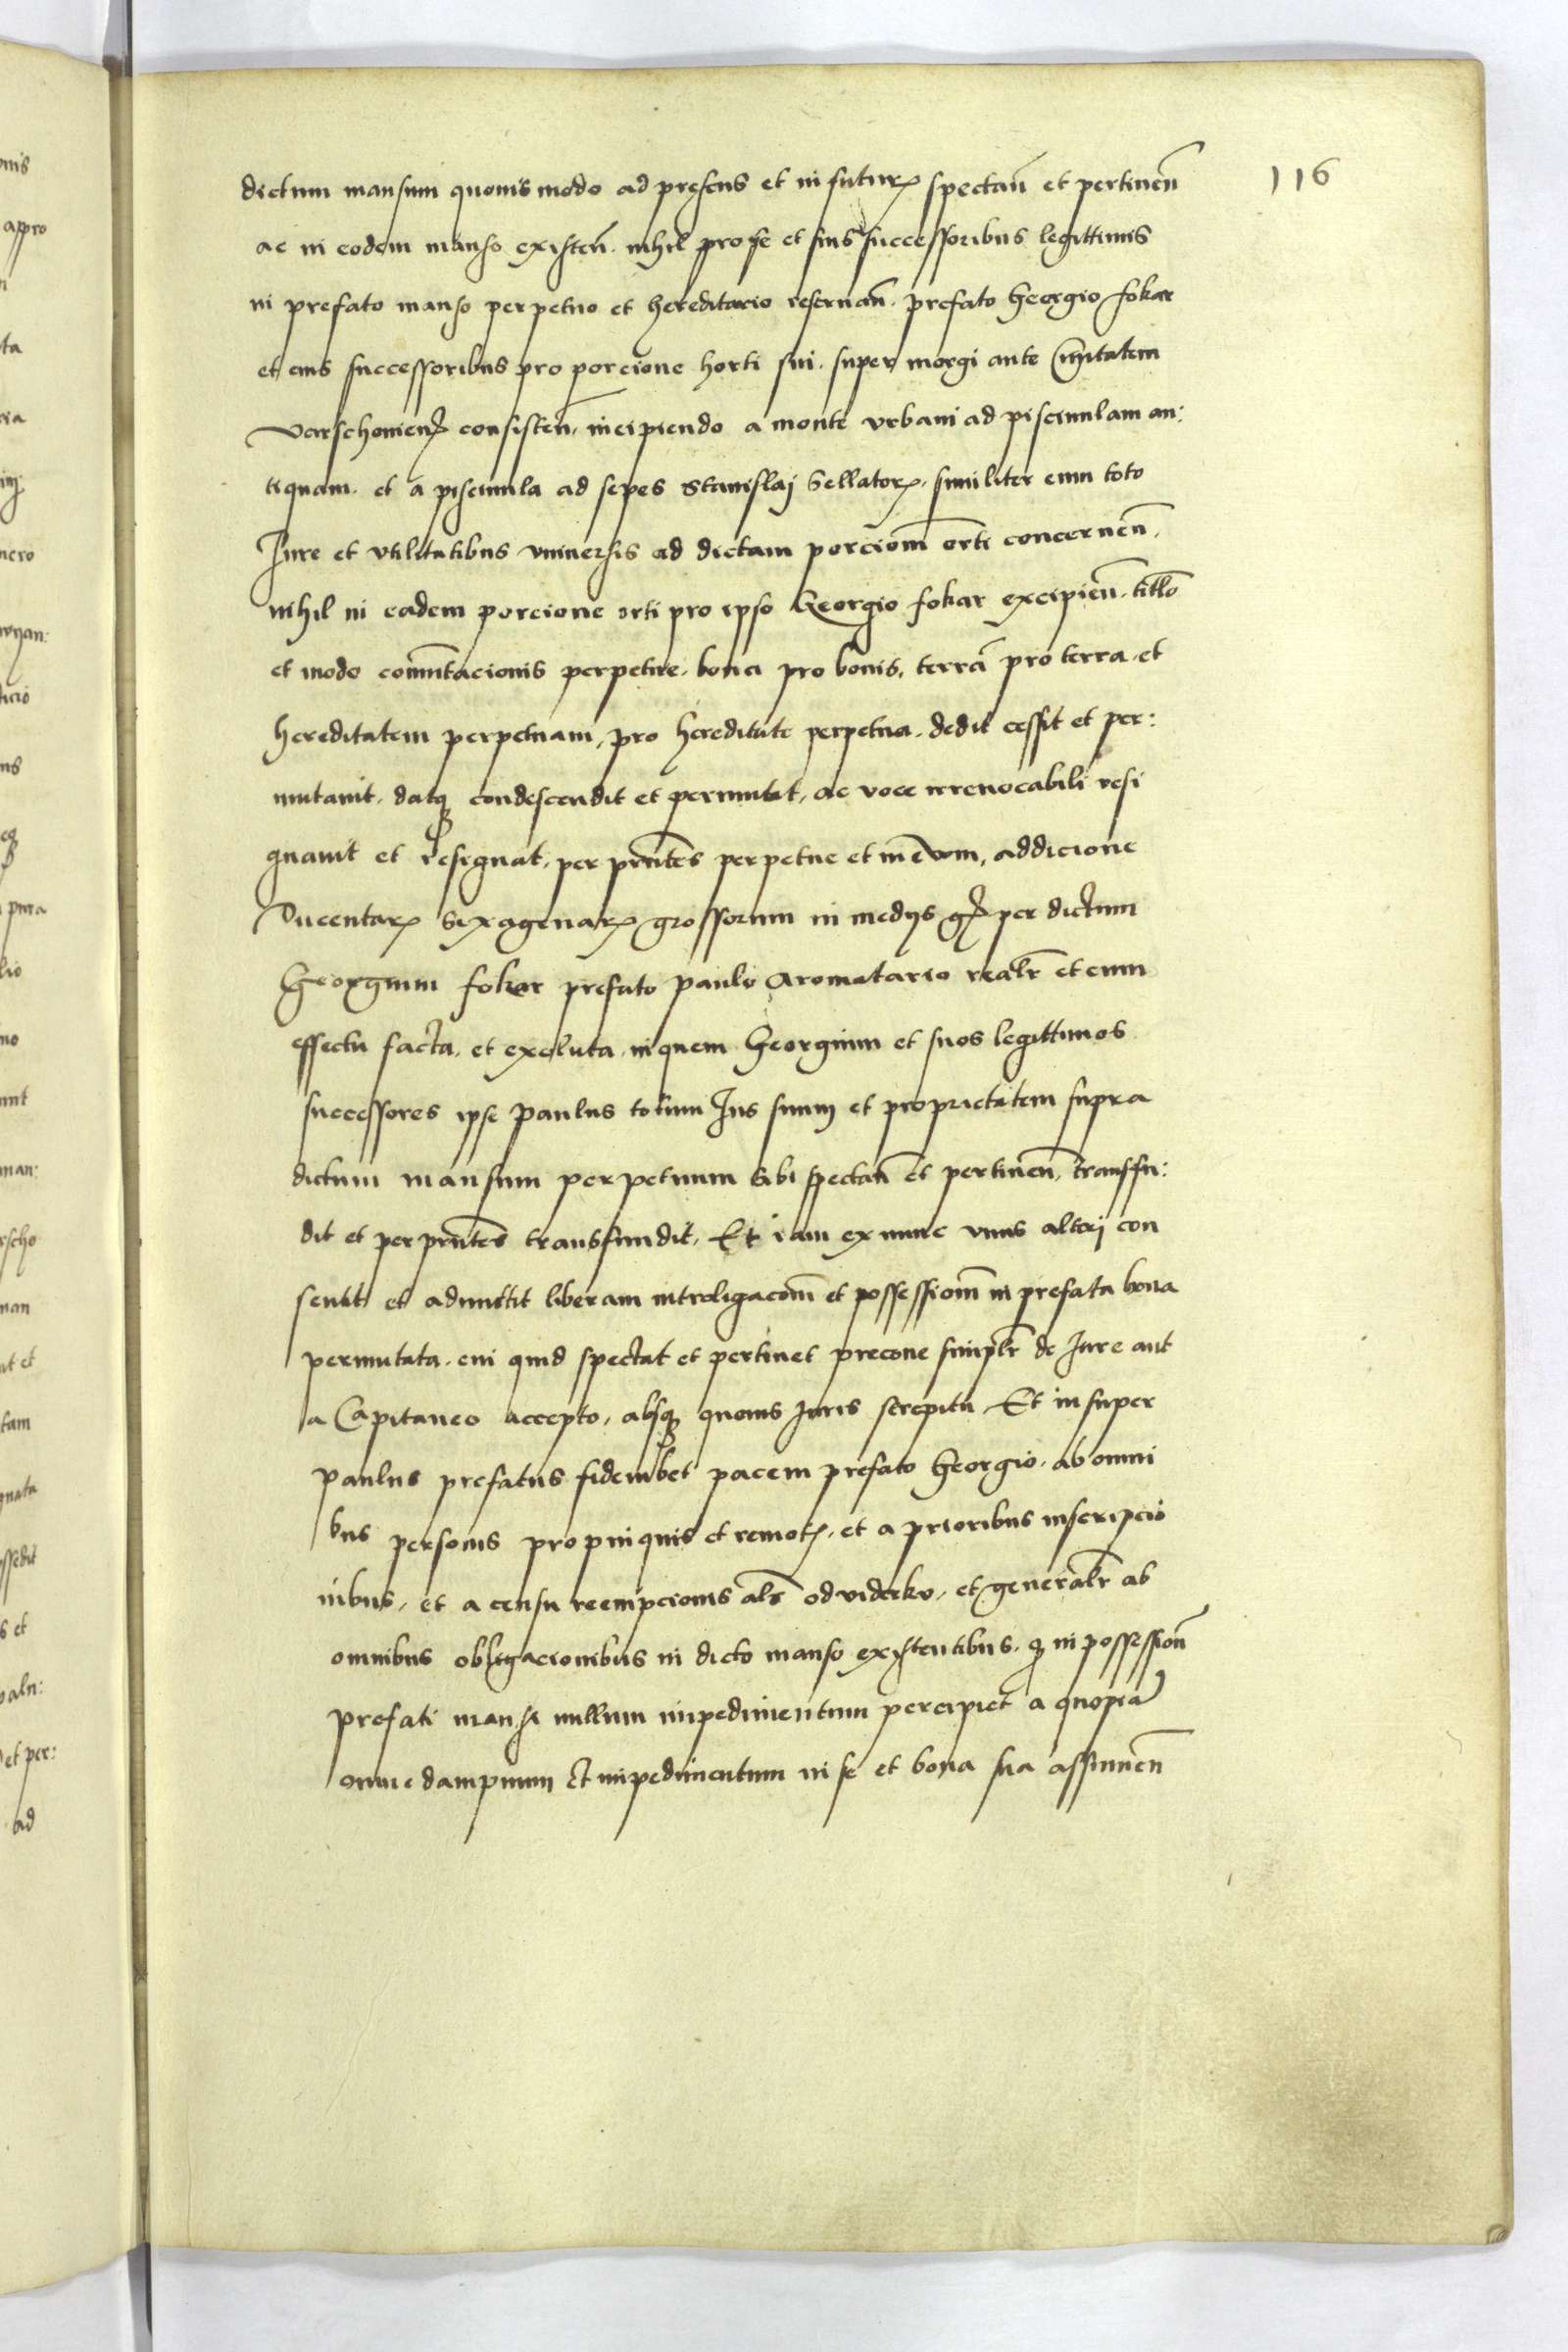 116
dictum mansum quouismodo ad presens et in futurꝝ spectan̄ et pertinen̄
ac in eodem manso existen̄. nihil pro se et suis successoribus legittimis
in prefato manso perpetuo et hereditario reseruan̄. prefato Georgio fokar
et eius successoribus pro porcione horti sui. super morgi ante Ciuitatem
Varschouien̄ consisten̄, incipiendo a monte vrbani ad pisciculam an:
tiquam. et a piscicula ad sepes Stanislaj Sellatorꝝ. similiter cum toto
Jure et vtilitatibus vniuersis ad dictam porciom̄ orti concernen̄.
nihil in eadem porcione orti pro ipso Georgio fokar excipien̄. titlō
et modo com̄utacionis perpetue. bona pro bonis, terrā pro terra. et
hereditatem perpetuam, pro hereditate perpetua. dedit cessit et per:
mutauit. datqꝫ condescendit et permutat, ac voce irreuocabili resi
gnauit et resignat. per pn̄tes perpetue et in euum, addicione
Ducentarꝝ Sexagenarꝝ grossorum in medijs gꝝ per dictum
Georgium fokar prefato paulo Aromatario realr̄ et cum
effectu facta. et exoluta. in quem Georgium et suos legittimos
successores ipse paulus totum Jus suum et proprietatem supra
dictum mansum perpetuum sibi spectan̄ et pertinen̄, transfu:
dit et per pn̄tes transfundit. Et iam ex nunc vnus alteri con
sentit et admittit liberam introligacom̄ et possessiom̄ in prefata bona
permutata. cui quid spectat et pertinet precone simplr̄ de Jure aut
a Capitaneo accepto, absqꝫ quouis Juris strepitu. Et insuper
paulus prefatus fideiubet pacem prefato Georgio. ab omni
bus personis propinquis et remotꝭ. et a prioribus inscripcio
nibus, et a censu reempcionis als̄ od viderku, et generalr̄ ab
omnibus obligacionibus in dicto manso existentibus. qꝫ in possession̄
prefati mansi nullum impedimentum percipiet a quopiā
omne dampnum et impedimentum in se et bona sua assumen̄